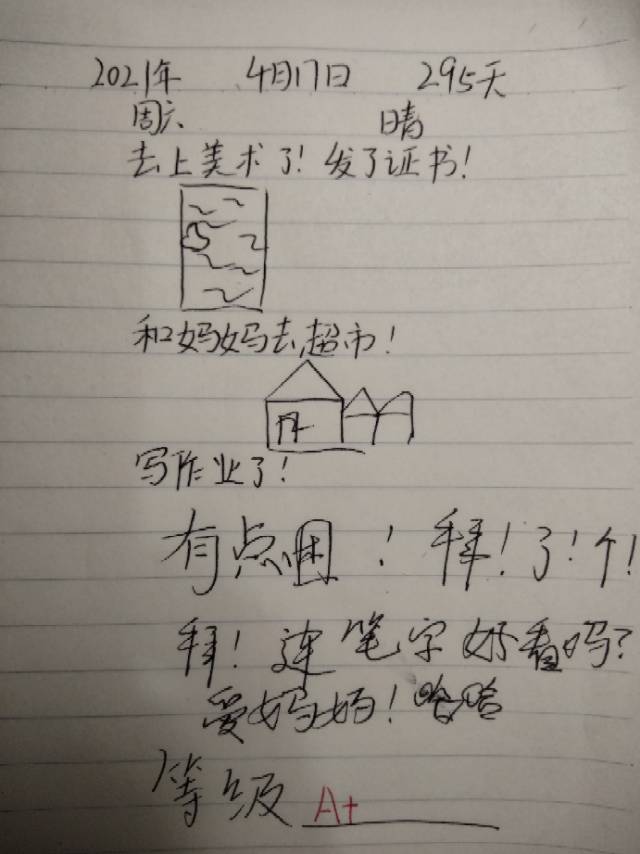 2021年 4月17日 295天
周六 晴
去上美术了！发了证书！
和妈妈去超市！
写作业了！
有点困！拜！了！个！
拜！连笔字好看吗？
爱妈妈！哈哈
等级 A+